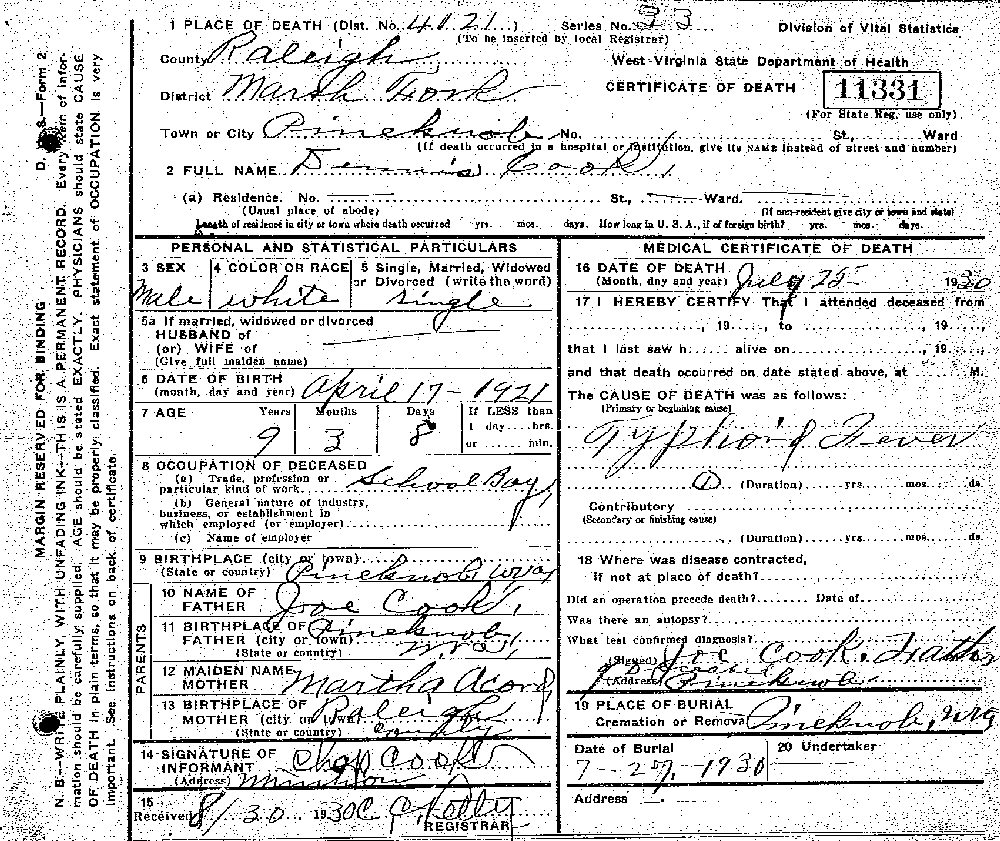 1 PLACE OF DEATH (Dist. No. 4121..) Series No. 33
(To be inserted by local Registrar)
County Raleigh
District Marsh Fork
Town or City Pineknob No. St., Ward
(If death occurred in a hospital or institution, give its NAME instead of street and number)
2 FULL NAME Dennis Cook
(a) Residence. No. St., Ward.
(Usual place of abode) (If non-resident give city or town and state)
Length of residence in city or town where death occurred yrs. mos. days. How long in U. S. A., if of foreign birth? yrs. mos. days.
Division of Vital Statistics
West Virginia State Department of Health
CERTIFICATE OF DEATH 11331
(For State Reg. use only)
PERSONAL AND STATISTICAL PARTICULARS
3 SEX
Male
4 COLOR OR RACE
white
5 Single, Married, Widowed
or Divorced (write the word)
Single
5a If married, widowed or divorced
HUSBAND of
(or) WIFE of
(Give full maiden name)
6 DATE OF BIRTH
(month, day and year) April 17 - 1921
7 AGE Years Months Days If LESS than
1 day....hrs.
9 3 8 or ...... min.
8 OCCUPATION OF DECEASED
(a) Trade, profession or
particular kind of work School Boy
(b) General nature of industry,
business, or establishment in
which employed (or employer)
(c) Name of employer
9 BIRTHPLACE (city or town)
(State or country) Pineknob, W Va
PARENTS
10 NAME OF
FATHER Joe Cook
11 BIRTHPLACE OF
FATHER (city or town) Pineknob,
(State or country) W Va,
12 MAIDEN NAME
MOTHER Martha Acord
13 BIRTHPLACE OF
MOTHER (city or town) Raleigh
(State or country) County
14 SIGNATURE OF
INFORMANT Cook
(Address)
15
Received 8/30 1930 C. C.
REGISTRAR
MEDICAL CERTIFICATE OF DEATH
16 DATE OF DEATH
(Month, day and year) July 25 1930
17 I HEREBY CERTIFY That I attended deceased from
, 19....., to , 19.....,
that I last saw h..... alive on , 19.....,
and that death occurred on date stated above, at M.
The CAUSE OF DEATH was as follows:
(Primary or beginning cause)
Typhoid Fever
(Duration) yrs. mos. ds.
Contributory
(Secondary or finishing cause)
(Duration) yrs. mos. ds.
18 Where was disease contracted,
If not at place of death?
Did an operation precede death? Date of
Was there an autopsy?
What test confirmed diagnosis?
(Signed) Joe Cook. Father
(Address) Pineknob
19 PLACE OF BURIAL
Cremation or Removal Pineknob, W Va
Date of Burial
7 - 27, 1930
20 Undertaker
Address
MARGIN RESERVED FOR BINDING
N. B.—WRITE PLAINLY, WITH UNFADING INK—THIS IS A PERMANENT RECORD. Every item of infor-
mation should be carefully supplied. AGE should be stated EXACTLY. PHYSICIANS should state CAUSE
OF DEATH in plain terms, so that it may be properly classified. Exact statement of OCCUPATION is very
important. See instructions on back of certificate.